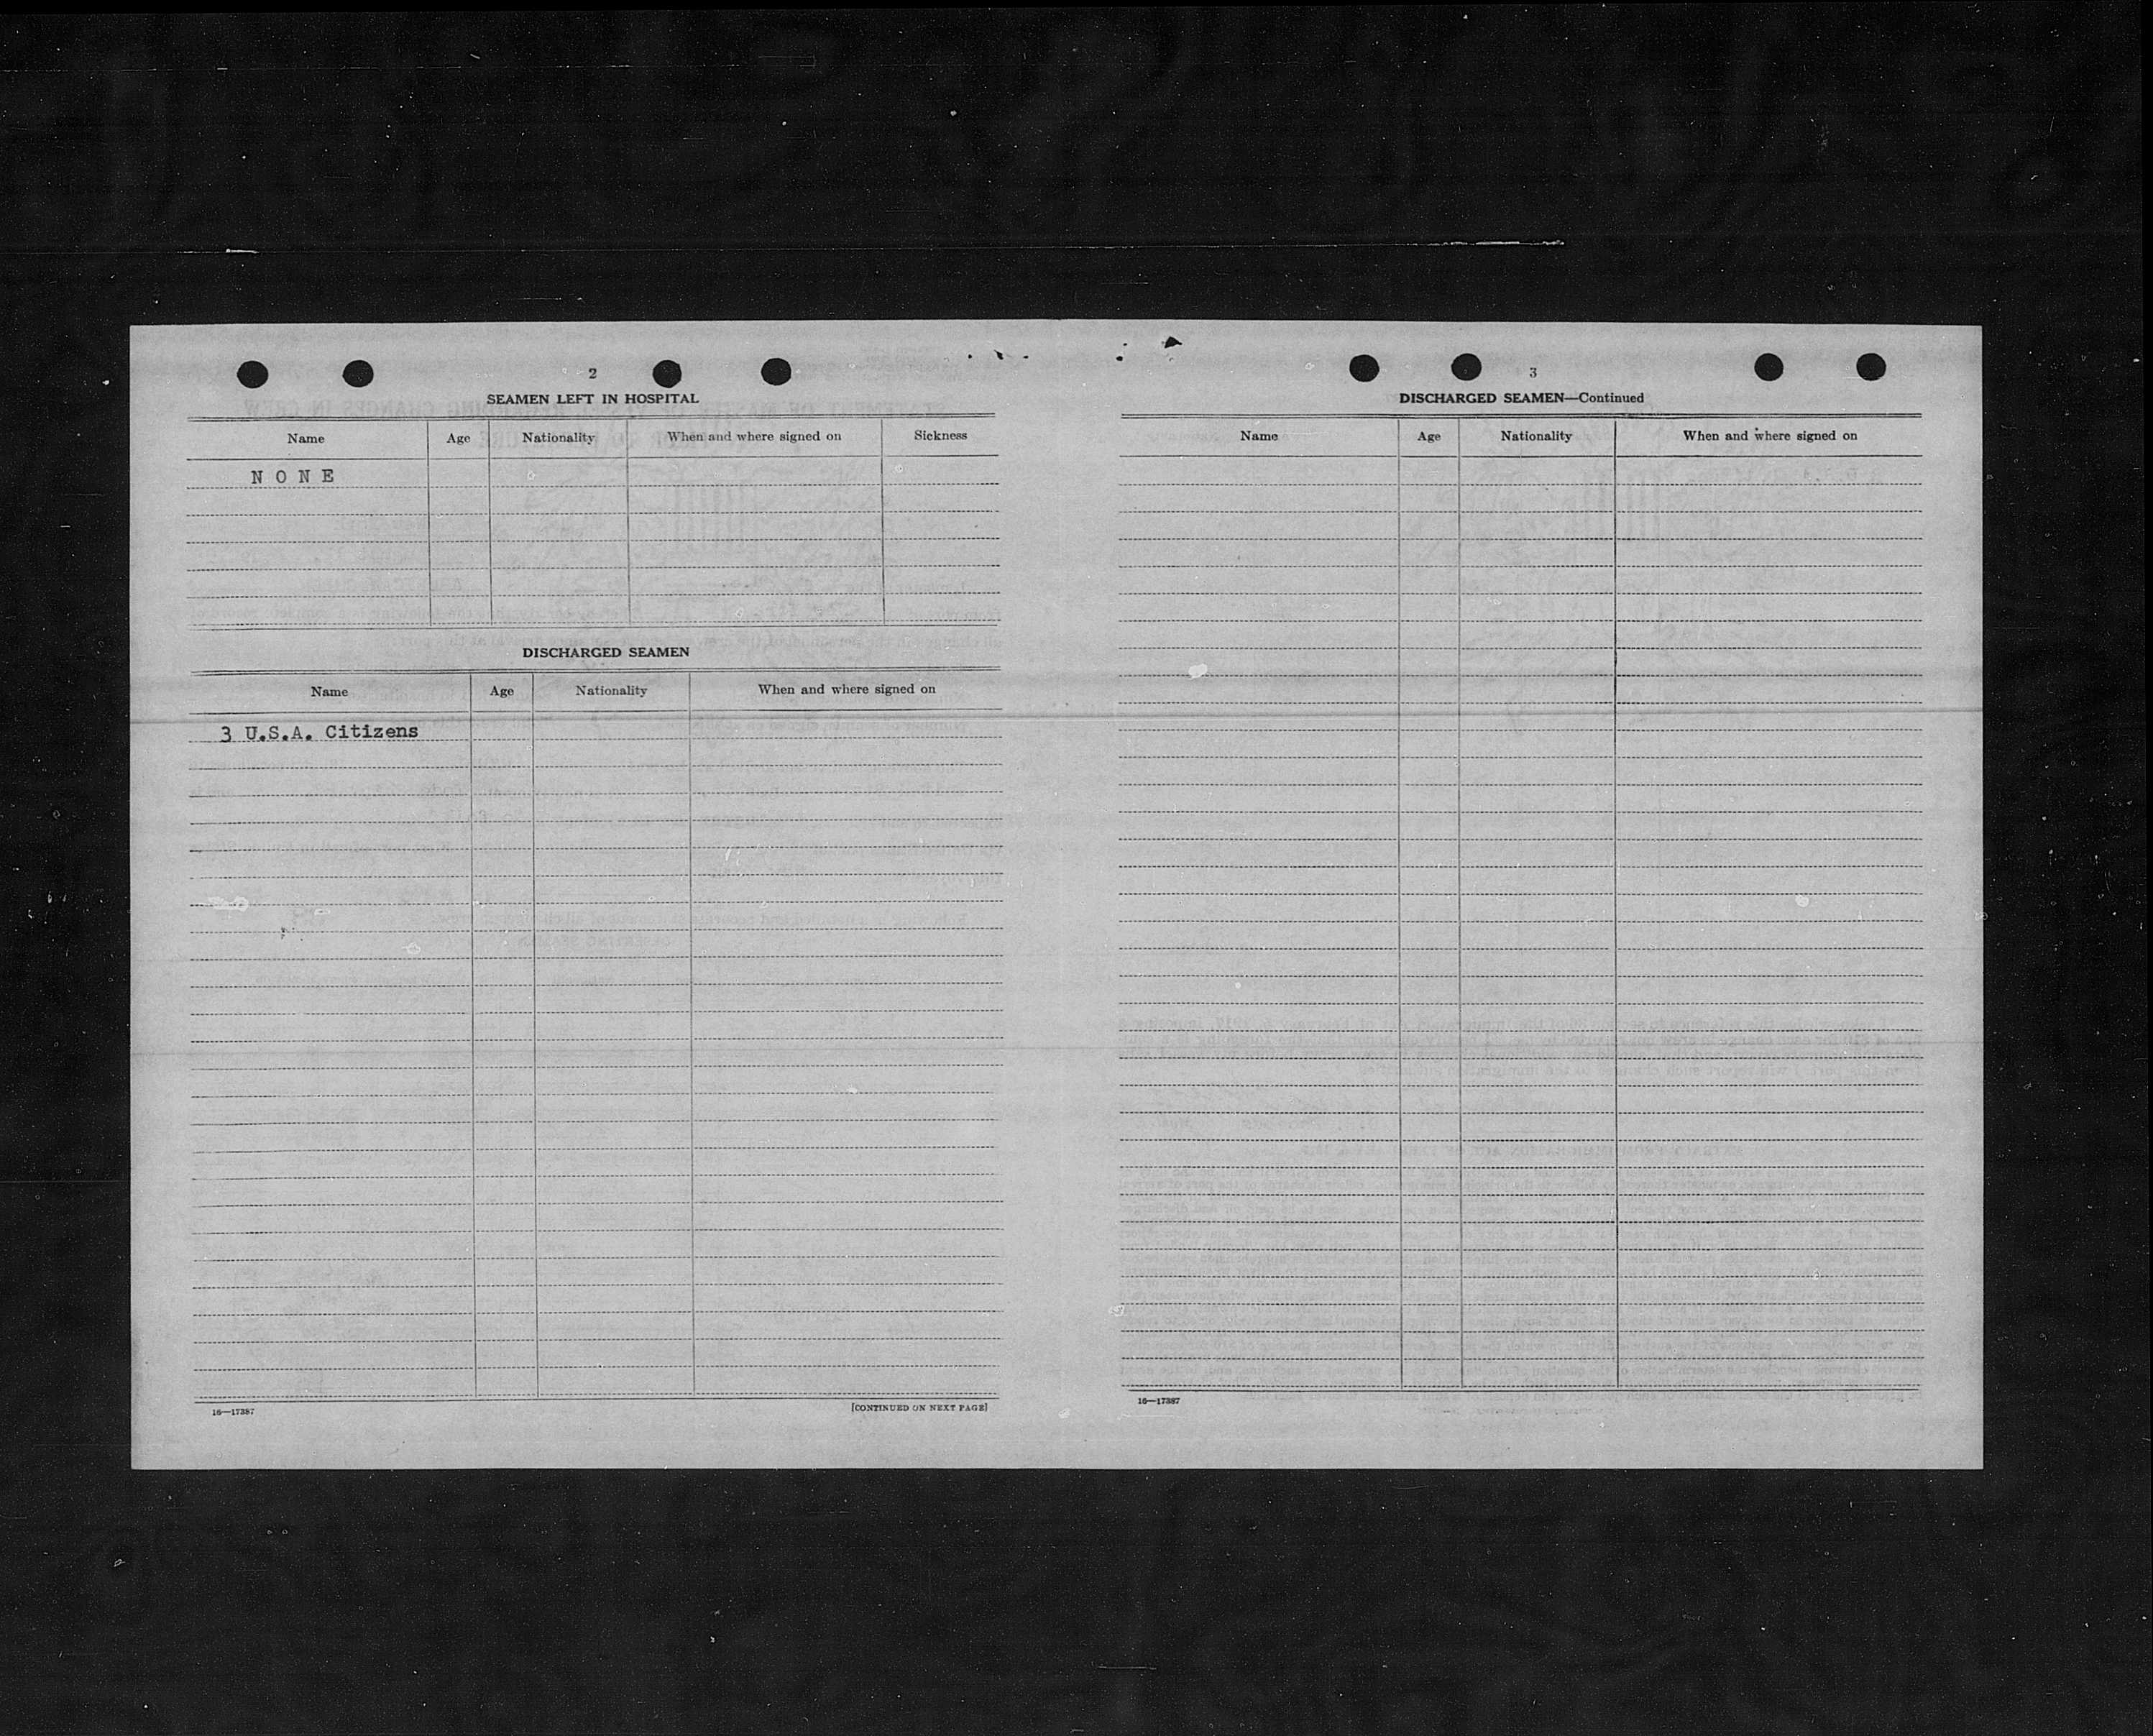 2
SEAMEN LEFT IN HOSPITAL
Name Age Nationality When and where signed on Sickness
N O N E
DISCHARGED SEAMEN
Name Age Nationality When and where signed on
3 U.S.A. Citizens
16—17387 [CONTINUED ON NEXT PAGE]
3
DISCHARGED SEAMEN—Continued
Name Age Nationality When and where signed on
16—17387